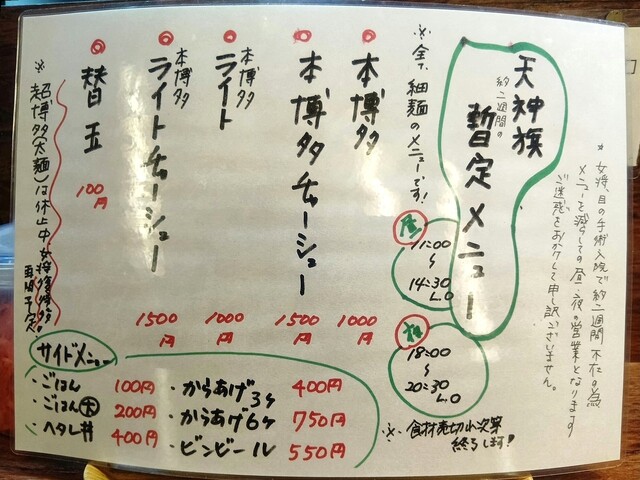 ★女将、目の手術入院で約二週間不在の為
メニューを減らしての昼・夜の営業となります
ご迷惑をおかけして申し訳ございません。
天神旗
約二週間の
暫定メニュー
昼
11:00
〜
14:30
L.O
夜
18:00
〜
20:30
L.O
※食材売切れ次第
終了します!
※全て細麺のメニューです!
◎本博多 1000円
◎本博多チャーシュー 1500円
◎本博多ライト 1000円
◎本博多ライトチャーシュー 1500円
◎替玉 100円
※超博多(太麺)は休止中 女将復帰後
再開予定
サイドメニュー
・ごはん 100円
・ごはん大 200円
・ヘタレ丼 400円
・からあげ3ヶ 400円
・からあげ6ヶ 750円
・ビンビール 550円